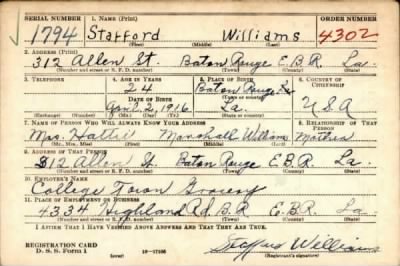 SERIAL NUMBER 1. NAME (Print) ORDER NUMBER
1794 Stafford Williams 4302
(First) (Middle) (Last)
2. ADDRESS (Print)
312 Allen St. Baton Rouge E.B.R. La.
(Number and street or R. F. D. number) (Town) (County) (State)
3. TELEPHONE 4. AGE IN YEARS 5. PLACE OF BIRTH 6. COUNTRY OF CITIZENSHIP
24 Baton Rouge
DATE OF BIRTH (Town or county)
2, 1916 La. USA
(Exchange) (No.) (Mo.) (Day) (Yr.) (State or country)
7. NAME OF PERSON WHO WILL ALWAYS KNOW YOUR ADDRESS 8. RELATIONSHIP OF THAT PERSON
Mrs. Hattie Marshall Williams Mother
(Mr., Mrs., Miss) (First) (Middle) (Last)
9. ADDRESS OF THAT PERSON
312 Allen St. Baton Rouge E.B.R. La.
(Number and street or R. F. D. number) (Town) (County) (State)
10. EMPLOYER'S NAME
College Town Grocery
11. PLACE OF EMPLOYMENT OR BUSINESS
4334 Highland Rd. B.R E.B.R. La.
(Number and street or R. F. D. number) (Town) (County) (State)
I AFFIRM THAT I HAVE VERIFIED ABOVE ANSWERS AND THAT THEY ARE TRUE.
REGISTRATION CARD
D. S. S. Form 1 Williams
(Registrant's signature)